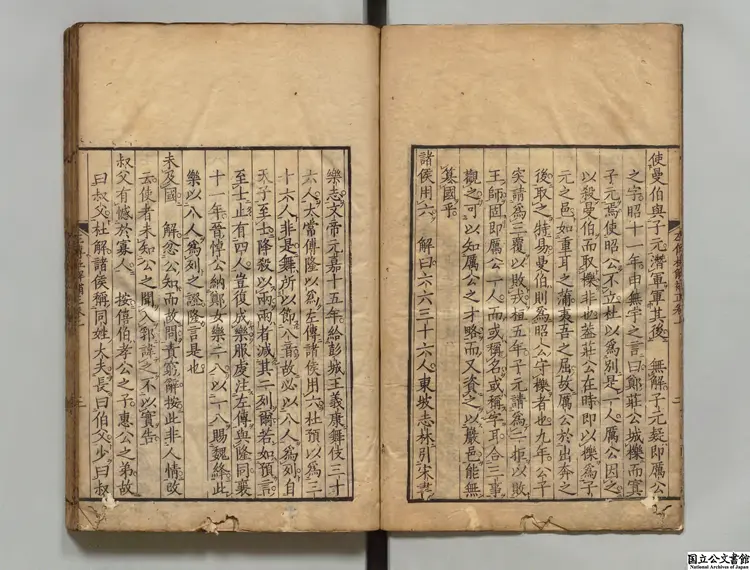 左傳杜解補正卷上
二
使曼伯與子元潛軍軍其後　無解子元疑即厲公
之字昭十一年申無宇之言曰鄭莊公城櫟而寘
子元焉使昭公不立杜以為別是一人厲公因之
以殺曼伯而取櫟非也蓋莊公在時即以櫟為子
元之邑如重耳之蒲夷吾之屈故厲公於出奔之
後取之特易曼伯則為昭公守櫟者也九年公子
突請為三覆以敗戎桓五年子元請為二拒以敗
王師固即厲公一人而或稱名或稱字耳合三事
觀之可以知厲公之才略而又資之以巖邑能無
篡國乎
諸侯用六　解曰六六三十六人東坡志林引宋書
樂志文帝元嘉十五年給彭城王義康舞伎三十
六人太常傅隆以為左傳諸侯用六杜預以為三
十六人非是舞所以節八音故必以八人為列自
天子至士降殺以兩兩者減其二列爾若如預言
至士止有四人豈復成樂服虔注左傳與隆同襄
十一年晉悼公納鄭女樂二八以一八賜魏絳此
樂以八人為列之證隆言是也
未及國　解忿公知而故問責窮辭按此非人情改
云使者未知公之聞入郛諱之不以實告
叔父有憾於寡人　按傳伯孝公之子惠公之弟故
曰叔父杜解諸侯稱同姓大夫長曰伯父少曰叔
国立公文書館
National Archives of Japan